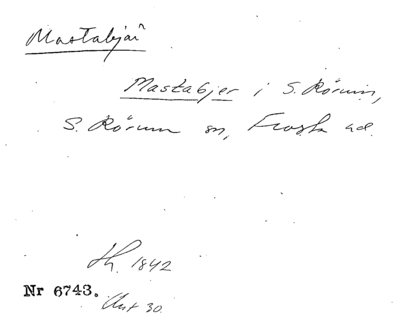 Mastabjär
Mastabjer i S. Rörum,
S. Rörum sn, Frosta hd.
Lh. 1842
Nr 6743.
Ant 30.